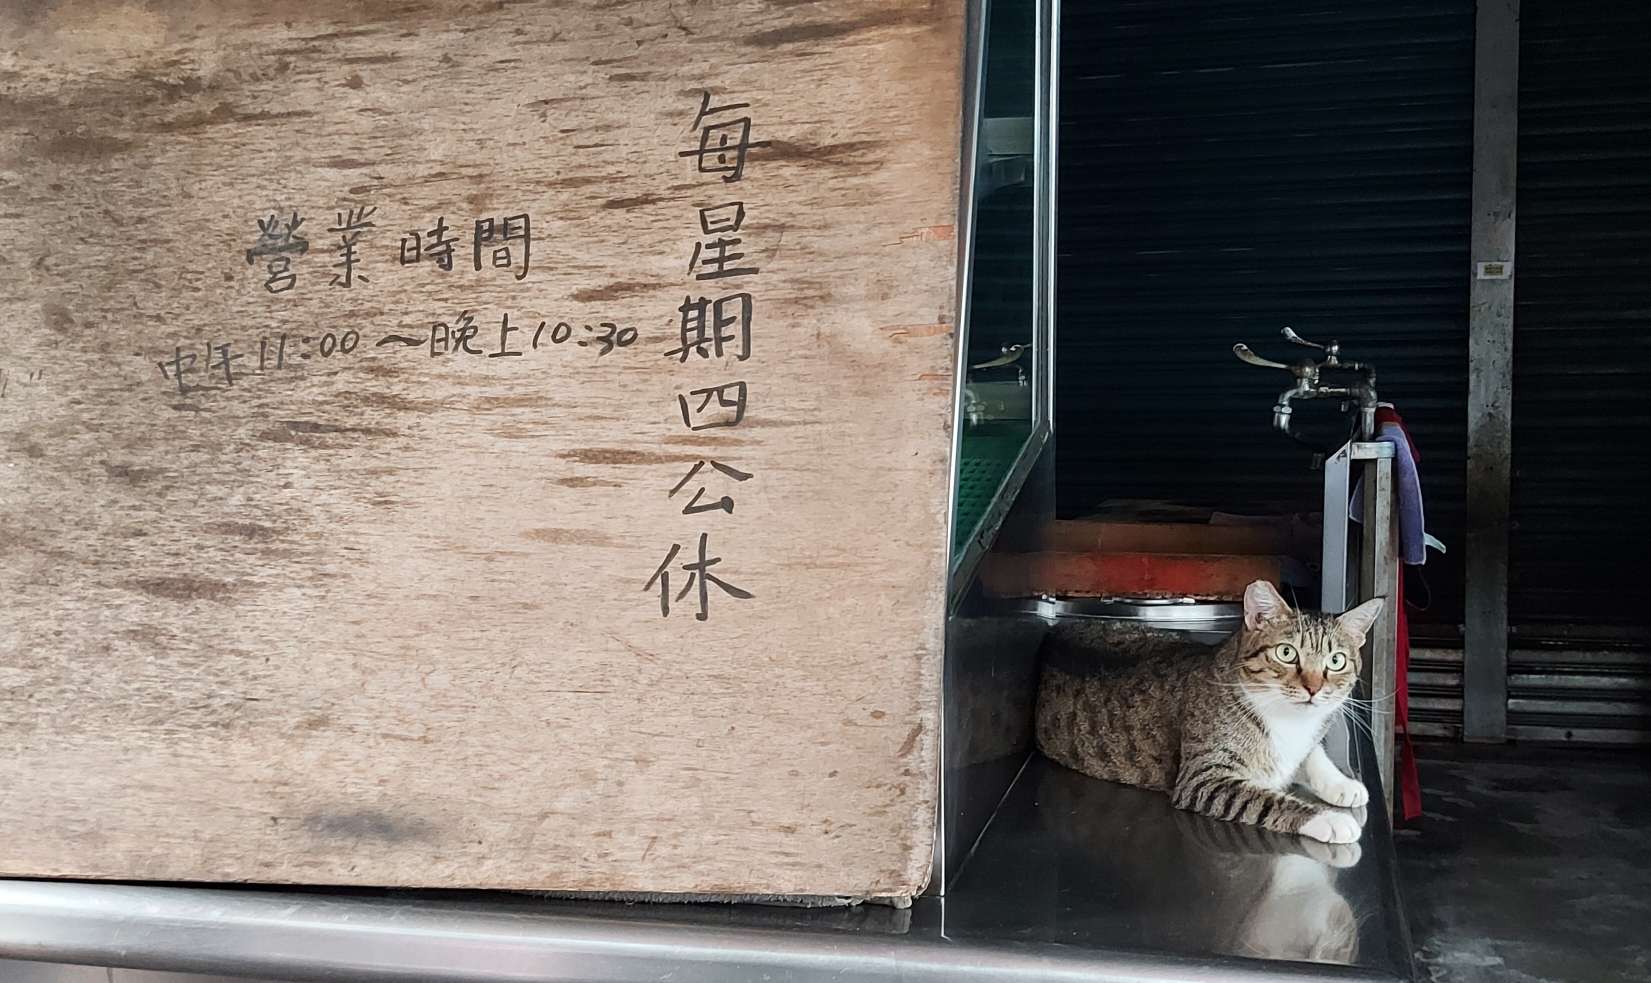 每星期四公休
營業時間
中午11:00～晚上10:30